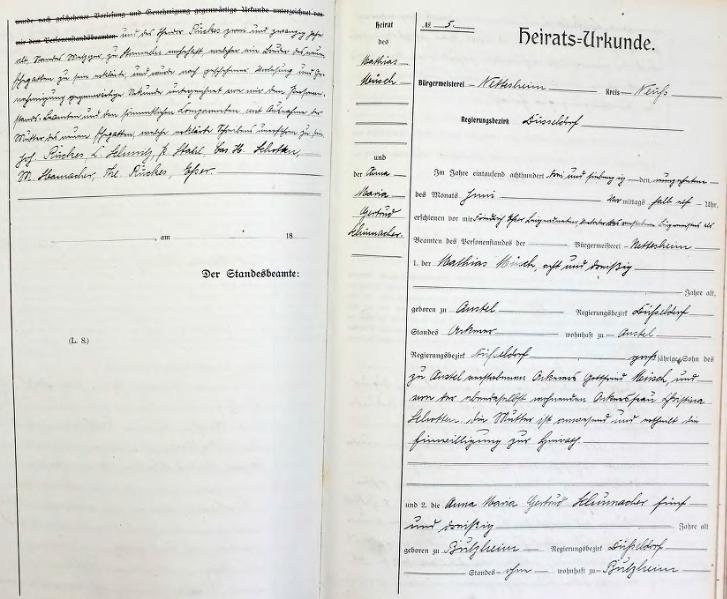 wurde nach geschehener Vorlesung und Genehmigung gegenwärtige Urkunde unterzeichnet von
mir dem Personenstandsbeamten und des Theodor Rückes zwei und zwanzig Jahre
alt, Standes Metzger zu wohnhaft, welcher ein Bruder des neuen
Ehegatten zu sein erklärte, und wurde nach geschehener Vorlesung und Ge-
nehmigung gegenwärtige Urkunde unterzeichnet von mir dem Personen-
stands-Beamten und den sämmtlichen Comparenten mit Ausnahme der
Mutter des neuen Ehegatten, welche erklärte Schreibens unerfahren zu sein.
Joh. Rückes
M. Hamacher, Th. Rückes, Esser.
, am 18
Der Standesbeamte:
(L. S.)
Heirat
des
Mathias
Müsch
und
der Anna
Maria
Gertrud
Schumacher.
№ 5.
Heirats-Urkunde.
Bürgermeisterei Nettesheim Kreis Neuß
Regierungsbezirk Düsseldorf
Im Jahre eintausend achthundert drei und siebenzig den neunzehnten
des Monats Juni Vor mittags halb elf Uhr,
erschienen vor mir Friedrich Esser Bürgermeister, als
Beamten des Personenstandes der Bürgermeisterei Nettesheim
1. der Mathias Müsch, acht und dreißig
Jahre alt,
geboren zu Anstel Regierungsbezirk Düsseldorf
Standes Ackerer wohnhaft zu Anstel
Regierungsbezirk Düsseldorf großjähriger Sohn des
zu Anstel verstorbenen Ackerers Gottfried Müsch, und
von der ebendaselbst wohnenden Ackersfrau Christina
Schotten. die Mutter ist anwesend und ertheilt die
Einwilligung zur Heirath.
und 2. die Anna Maria Gertrud Schumacher fünf
und dreißig Jahre alt
geboren zu Butzheim Regierungsbezirk Düsseldorf
Standes ohne wohnhaft zu Butzheim